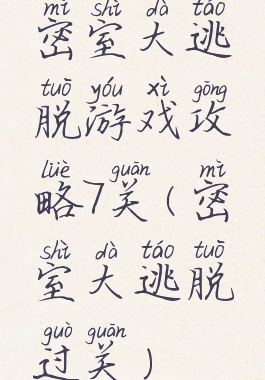 mì shì dà táo
密室大逃
tuō yóu xì gōng
脱游戏攻
lüè guān mì
略7关（密
shì dà táo tuō
室大逃脱
guò guān
过关）